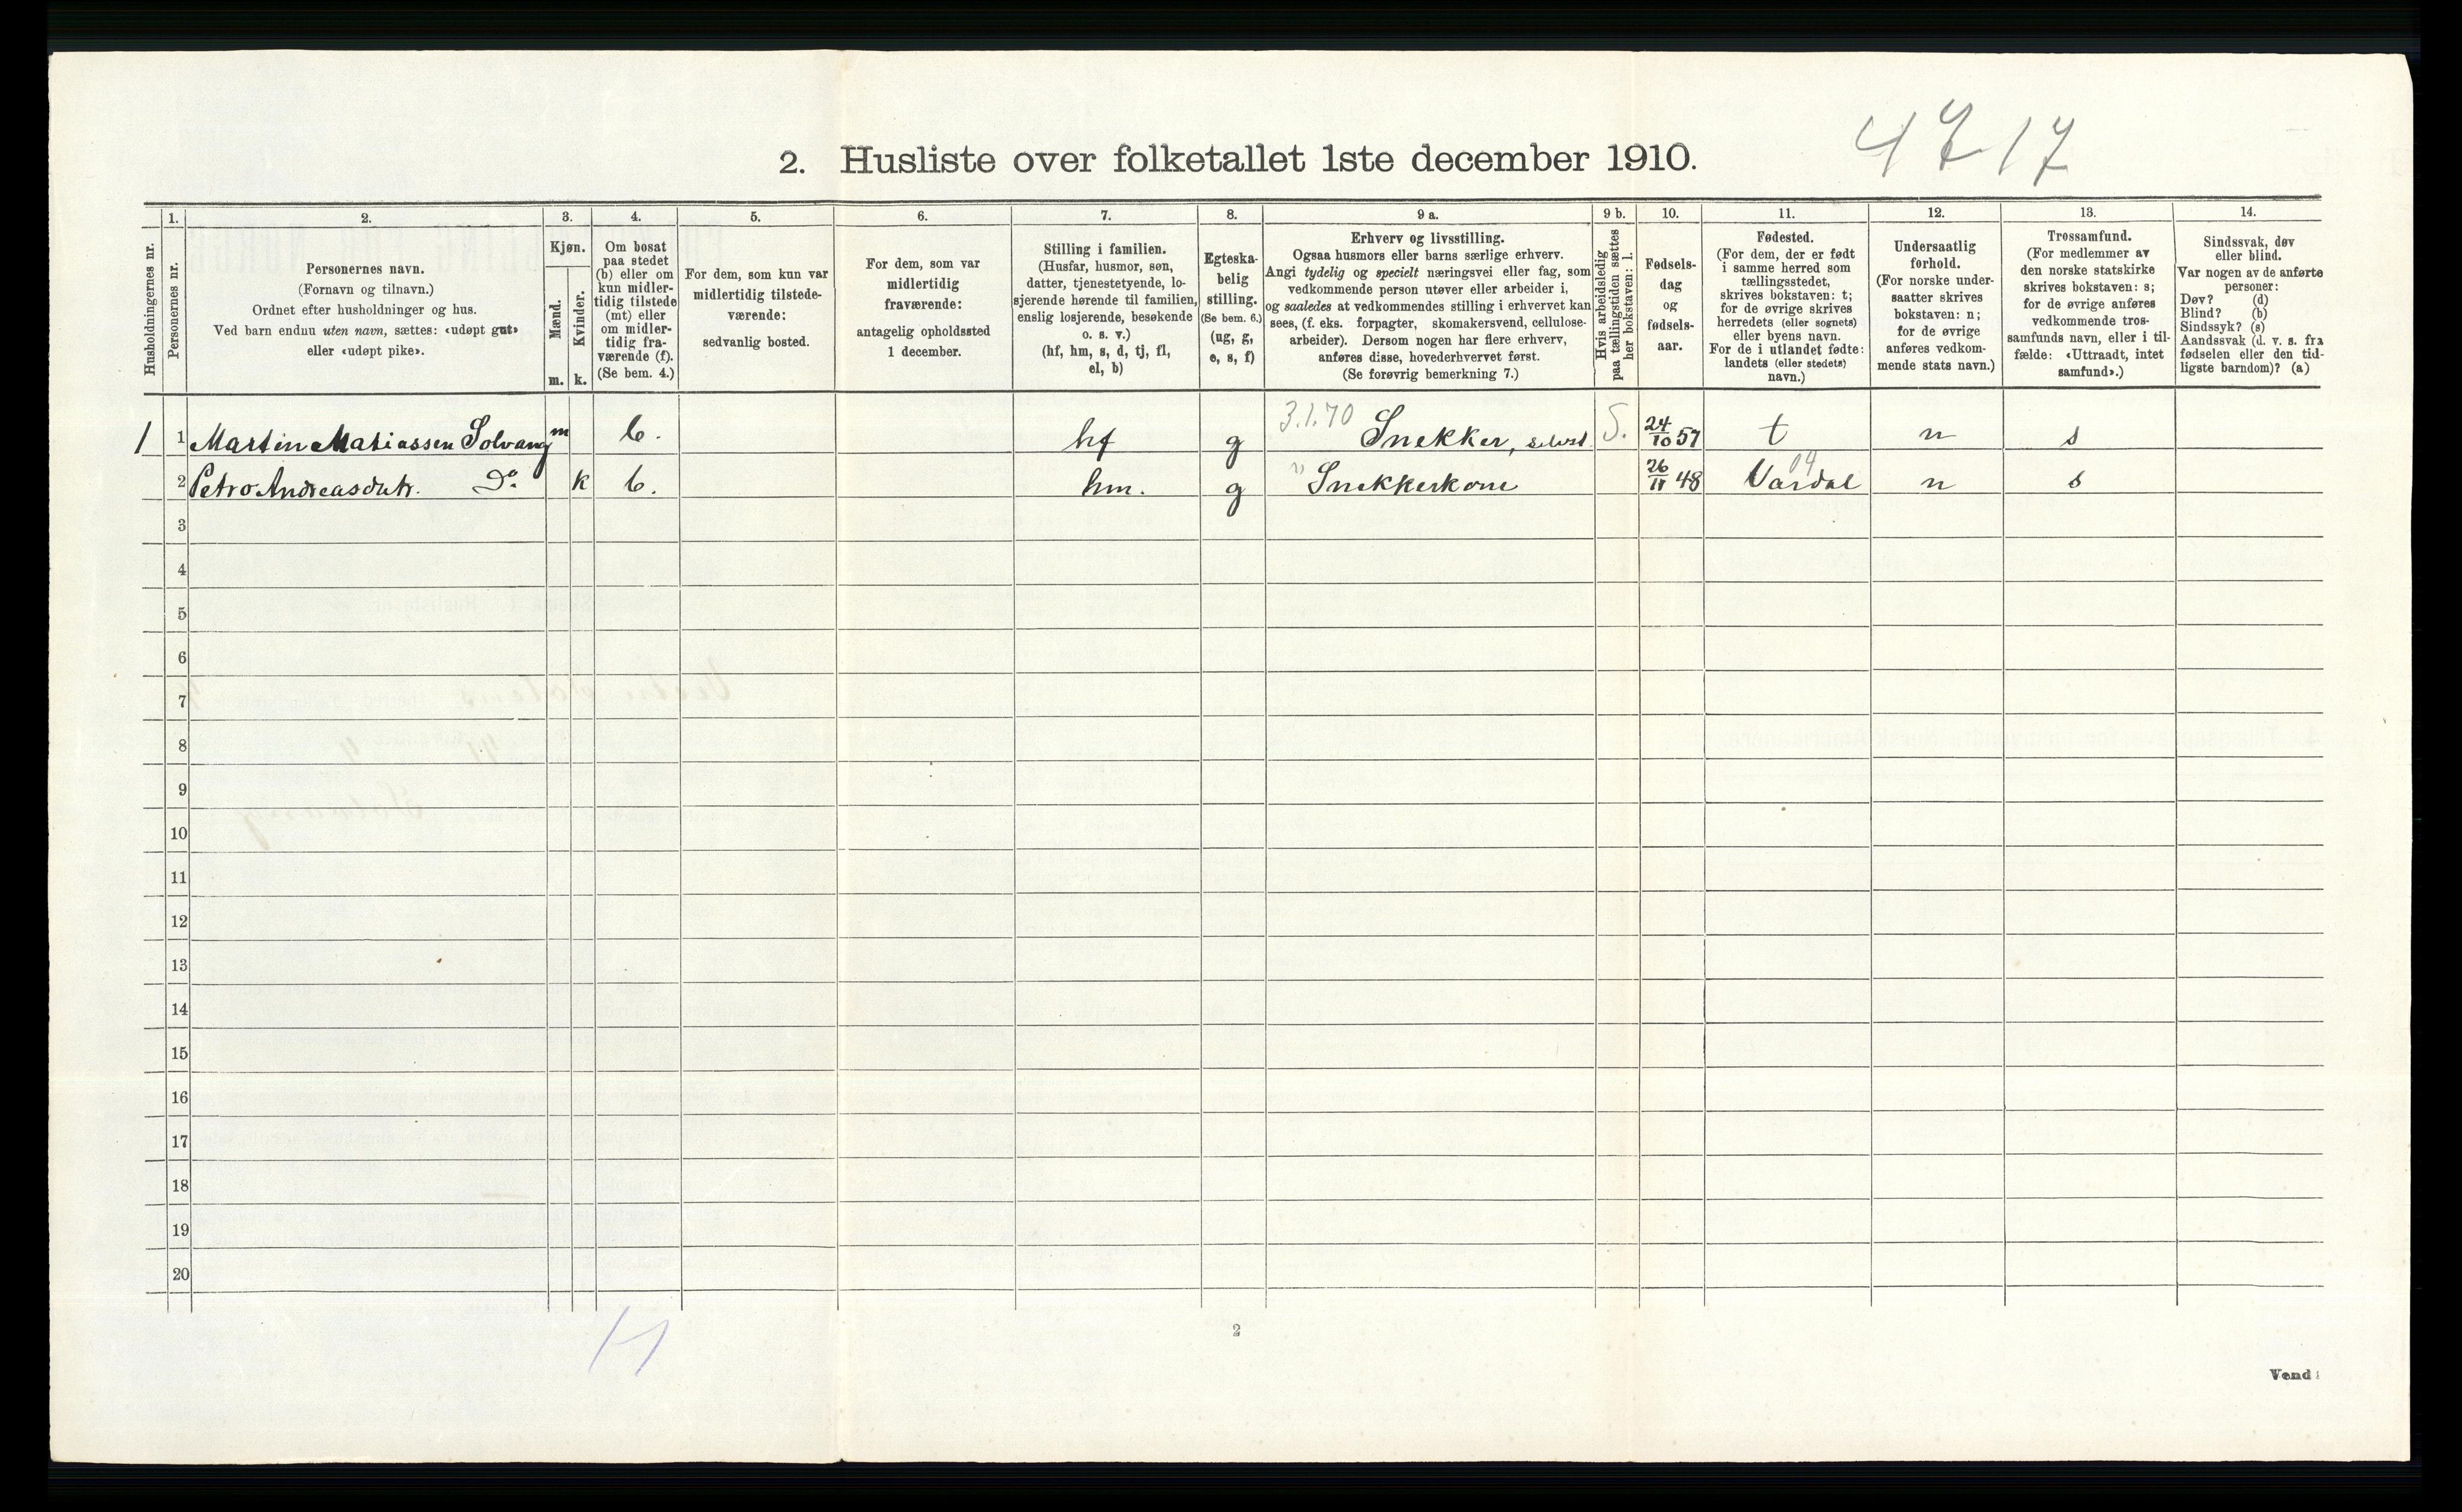 4717
2. Husliste over folketallet 1ste december 1910.
Husholdningernes nr.
1.
Personernes nr.
2.
Personernes navn.
(Fornavn og tilnavn.)
Ordnet efter husholdninger og hus.
Ved barn endnu uten navn, sættes: «udøpt gut»
eller «udøpt pike».
3.
Kjøn.
Mænd.
m.
Kvinder.
k.
4.
Om bosat
paa stedet
(b) eller om
kun midler-
tidig tilstede
(mt) eller
om midler-
tidig fra-
værende (f).
(Se bem. 4.)
5.
For dem, som kun var
midlertidig tilstede-
værende:
sedvanlig bosted.
6.
For dem, som var
midlertidig
fraværende:
antagelig opholdssted
1 december.
7.
Stilling i familien.
(Husfar, husmor, søn,
datter, tjenestetyende, lo-
sjerende hørende til familien,
enslig losjerende, besøkende
o. s. v.)
(hf, hm, s, d, tj, fl,
el, b)
8.
Egteska-
belig
stilling.
(Se bem. 6.)
(ug, g,
e, s, f)
9 a.
Erhverv og livsstilling.
Ogsaa husmors eller barns særlige erhverv.
Angi tydelig og specielt næringsvei eller fag, som
vedkommende person utøver eller arbeider i,
og saaledes at vedkommendes stilling i erhvervet kan
sees, (f. eks. forpagter, skomakersvend, cellulose-
arbeider). Dersom nogen har flere erhverv,
anføres disse, hovederhvervet først.
(Se forøvrig bemerkning 7.)
9 b.
Hvis arbeidsledig
paa tællingstiden sættes
her bokstaven: l.
10.
Fødsels-
dag
og
fødsels-
aar.
11.
Fødested.
(For dem, der er født
i samme herred som
tællingsstedet,
skrives bokstaven: t;
for de øvrige skrives
herredets (eller sognets)
eller byens navn.
For de i utlandet fødte:
landets (eller stedets)
navn.)
12.
Undersaatlig
forhold.
(For norske under-
saatter skrives
bokstaven: n;
for de øvrige
anføres vedkom-
mende stats navn.)
13.
Trossamfund.
(For medlemmer av
den norske statskirke
skrives bokstaven: s;
for de øvrige anføres
vedkommende tros-
samfunds navn, eller i til-
fælde: «Uttraadt, intet
samfund».)
14.
Sindssvak, døv
eller blind.
Var nogen av de anførte
personer:
Døv? (d)
Blind? (b)
Sindssyk? (s)
Aandssvak (d. v. s. fra
fødselen eller den tid-
ligste barndom)? (a)
1 1 Martin Matiassen Solvang m b. hf g 3.1.70 Snekker, selvst. S. 24/10 57 t n s
2 Petro Andreasdatr. Do k b. hm. g " Snekkerkone 26/11 48 Vardal 04 n s
3
4
5
6
7
8
9
10
11
12
13
14
15
16
17
18
19
20
H
2
Vend!